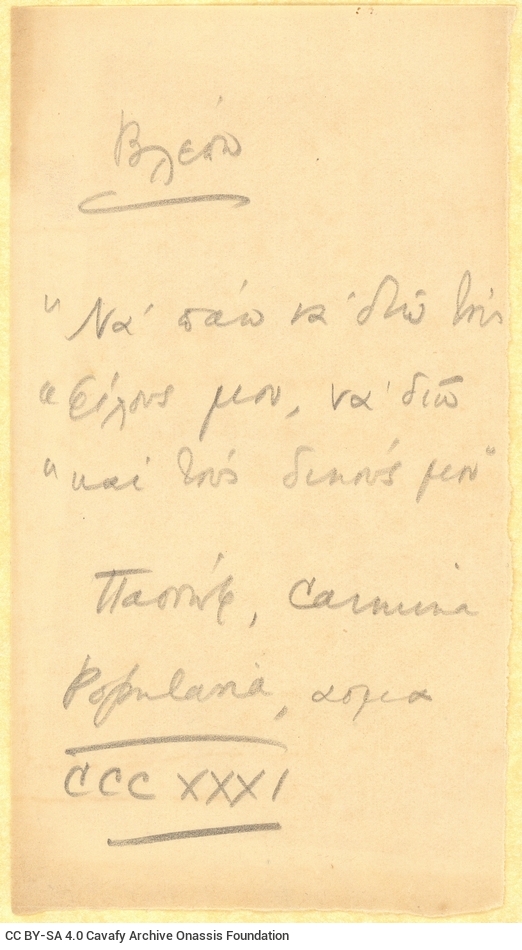 Βλέπω
"Νά πάω νά διῶ τούς
"φίλους μου, νά διῶ
"καί τούς δικούς μου"
Πασσώφ, Carmina
Popularia, ασμα
CCCXXXI
CC BY-SA 4.0 Cavafy Archive Onassis Foundation